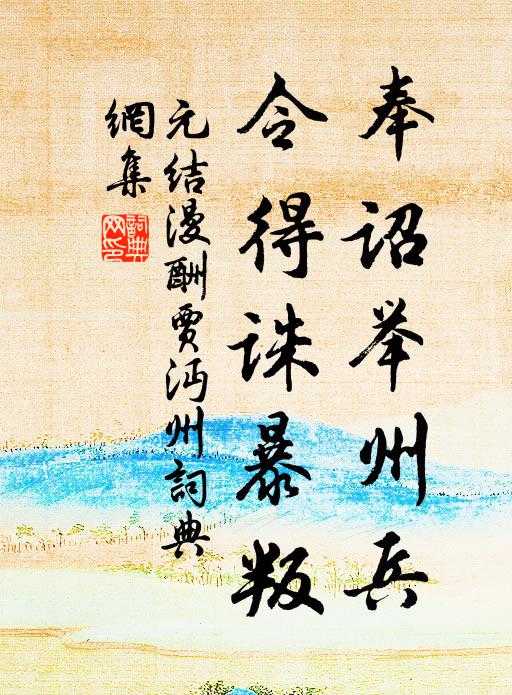 奉诏举州兵
令得诛暴叛
元结漫酬贾沔州詞典
網集
詞典網印